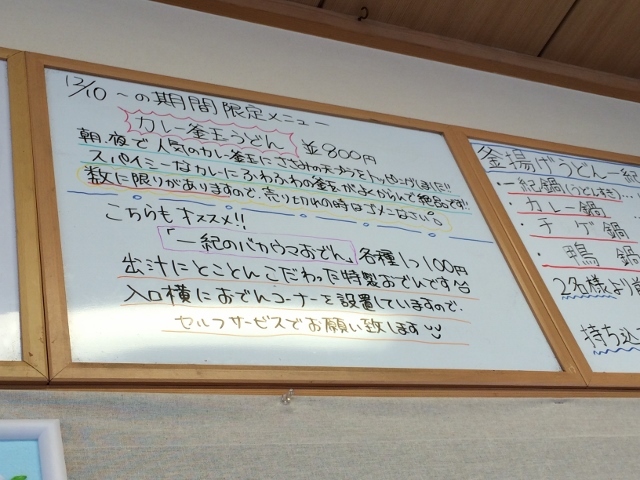 12/10 ～の期間限定メニュー
カレー釜玉うどん 並800円
朝、夜で人気のカレー釜玉にささみの天ぷらをトッピングしました!!
スパイシーなカレーにふわふわの釜玉がよくからんで絶品です!!
数に限りがありますので、売り切れの時はゴメンなさい。
こちらもオススメ!!
「一紀のバカウマおでん」各種1つ100円
出汁にとことんこだわった特製おでんです
入口横におでんコーナーを設置していますので、
セルフサービスでお願い致します
釜揚げうどん一紀
・一紀鍋(うどんすき)…
・カレー鍋
・チゲ鍋
・鴨鍋
2名様より
持ち込